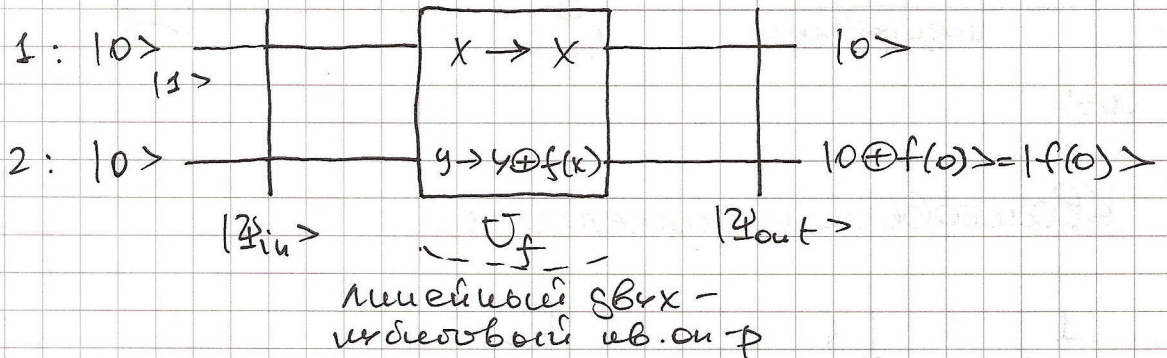 1: |0> x → x |0>
|1>
2: |0> y → y⊕f(x) |0⊕f(0)>=|f(0)>
|Ψin> Uf |Ψout>
линейный двух-
кубитовый кв. оп-р